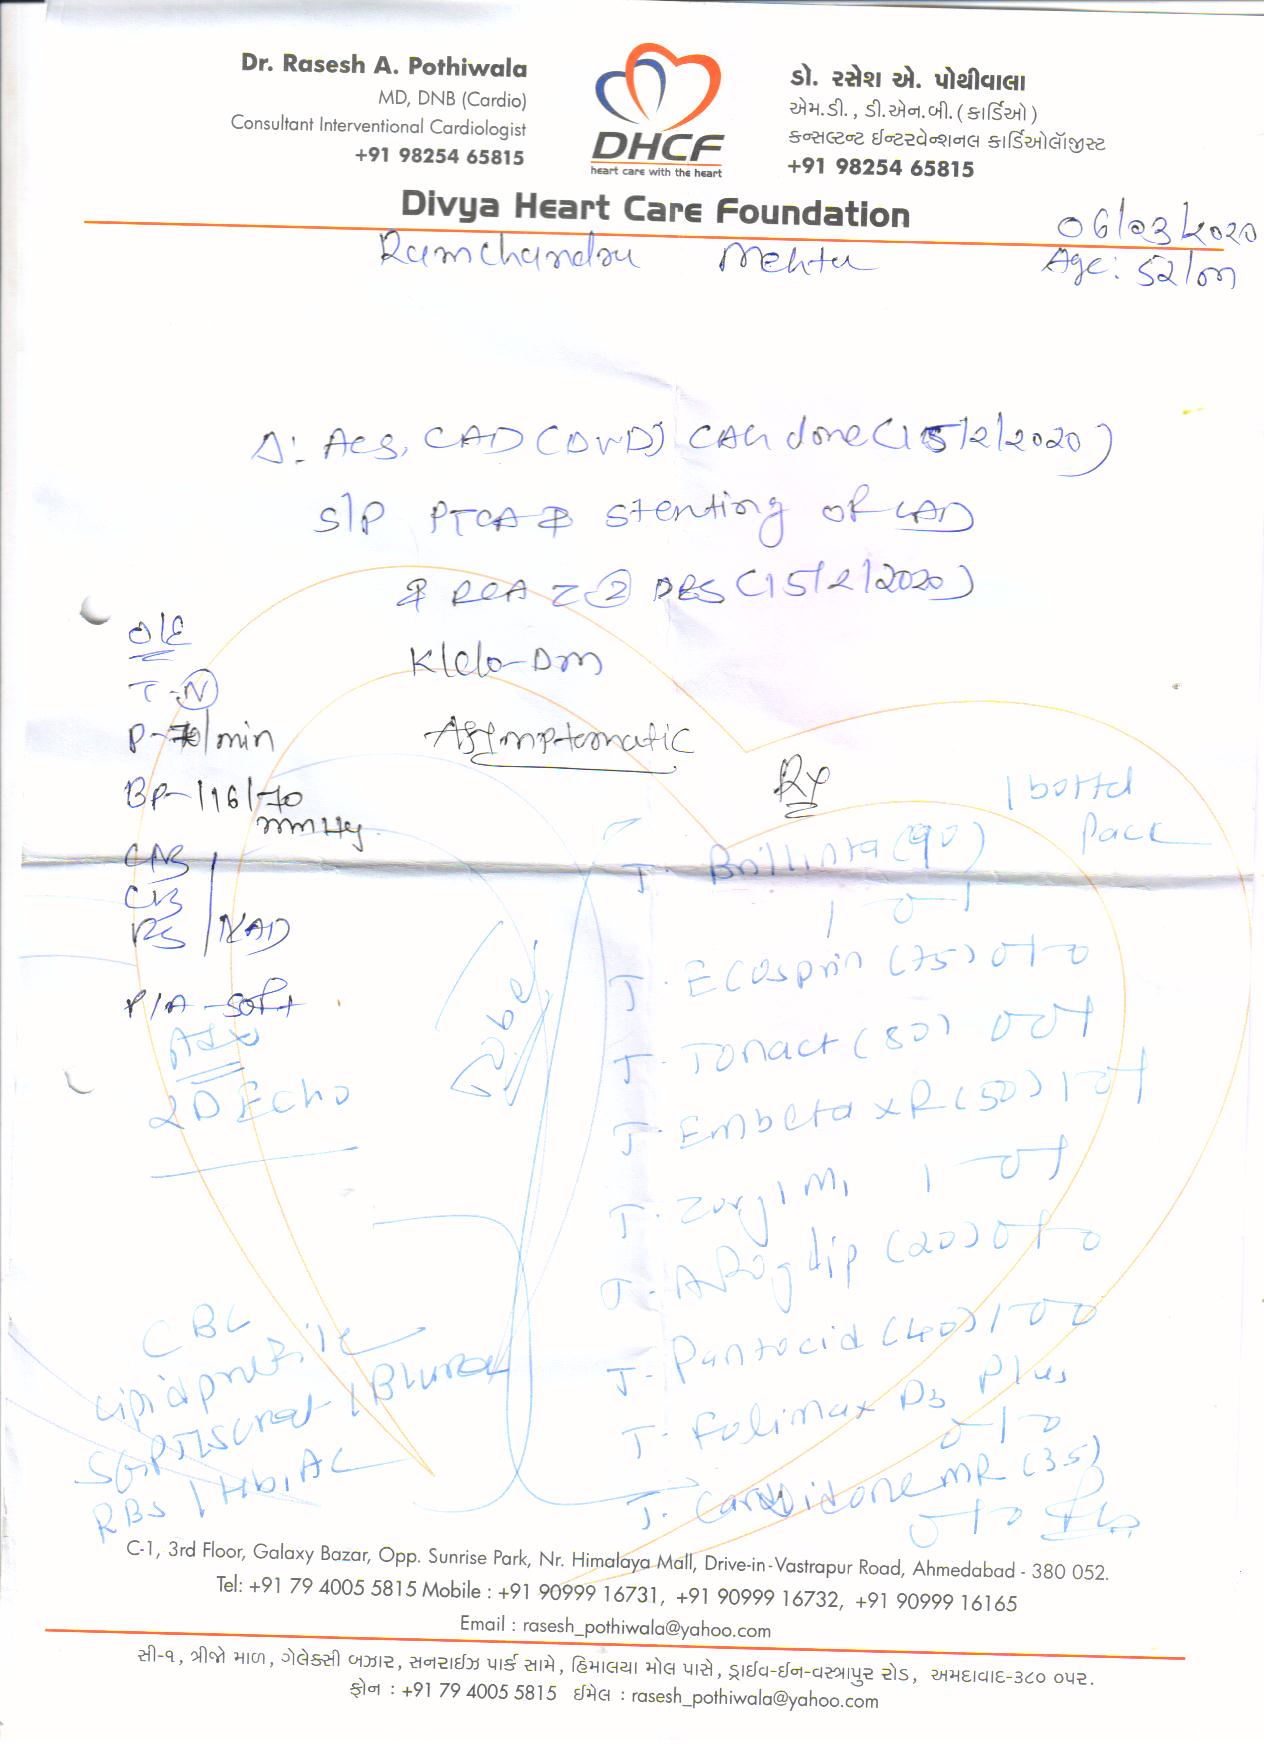 Dr. Rasesh A. Pothiwala
MD, DNB (Cardio)
Consultant Interventional Cardiologist
+91 98254 65815
DHCF
heart care with the heart
ડો. રસેશ એ. પોથીવાલા
એમ.ડી., ડી.એન.બી. (કાર્ડિઓ)
કન્સલ્ટન્ટ ઈન્ટરવેન્શનલ કાર્ડિઓલૉજીસ્ટ
+91 98254 65815
Divya Heart Care Foundation
06/03/2020
Ramchandra Mehta
Age: 52/m
Δ: ACS, CAD (DVD) CAG done (15/2/2020)
S/P PTCA & stenting of LAD
& RCA c̄ ② DES (15/2/2020)
O/E
K/c/o - DM
T - N
P - 70/min
Asymptomatic
BP - 116/70
mmHg
Rx
1 bottel
Pack
T. Brilinta (90)
1 0 1
CNS
CVS
RS / NAD
T. Ecosprin (75) 0 1 0
P/A - soft
T. Tonact (80) 0 0 1
Adv
2D Echo
T. Embeta XR (50) 1 0 1
T. Zoryl M1 1 0 1
T. (20) 0 1 0
T. Pantocid (40) 1 0 0
T. Folimax D3 Plus
0 1 0
T. Cardidone MR (35)
0 1 0
CBC
Lipid profile
SGPT / S creat / Blurea
RBS / HbA1C
C-1, 3rd Floor, Galaxy Bazar, Opp. Sunrise Park, Nr. Himalaya Mall, Drive-in-Vastrapur Road, Ahmedabad - 380 052.
Tel: +91 79 4005 5815 Mobile : +91 90999 16731, +91 90999 16732, +91 90999 16165
Email : rasesh_pothiwala@yahoo.com
સી-૧, ત્રીજો માળ, ગેલેક્સી બઝાર, સનરાઈઝ પાર્ક સામે, હિમાલયા મોલ પાસે, ડ્રાઈવ-ઈન-વસ્ત્રાપુર રોડ, અમદાવાદ-૩૮૦ ૦૫૨.
ફોન : +91 79 4005 5815 ઈમેલ : rasesh_pothiwala@yahoo.com